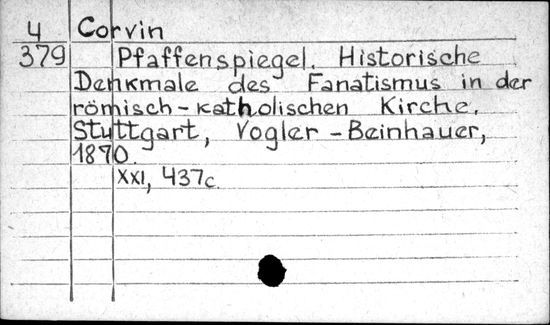 4 Corvin
379 Pfaffenspiegel. Historische
Denkmale des Fanatismus in der
römisch-katholischen Kirche.
Stuttgart, Vogler-Beinhauer,
1870.
XXI, 437c.